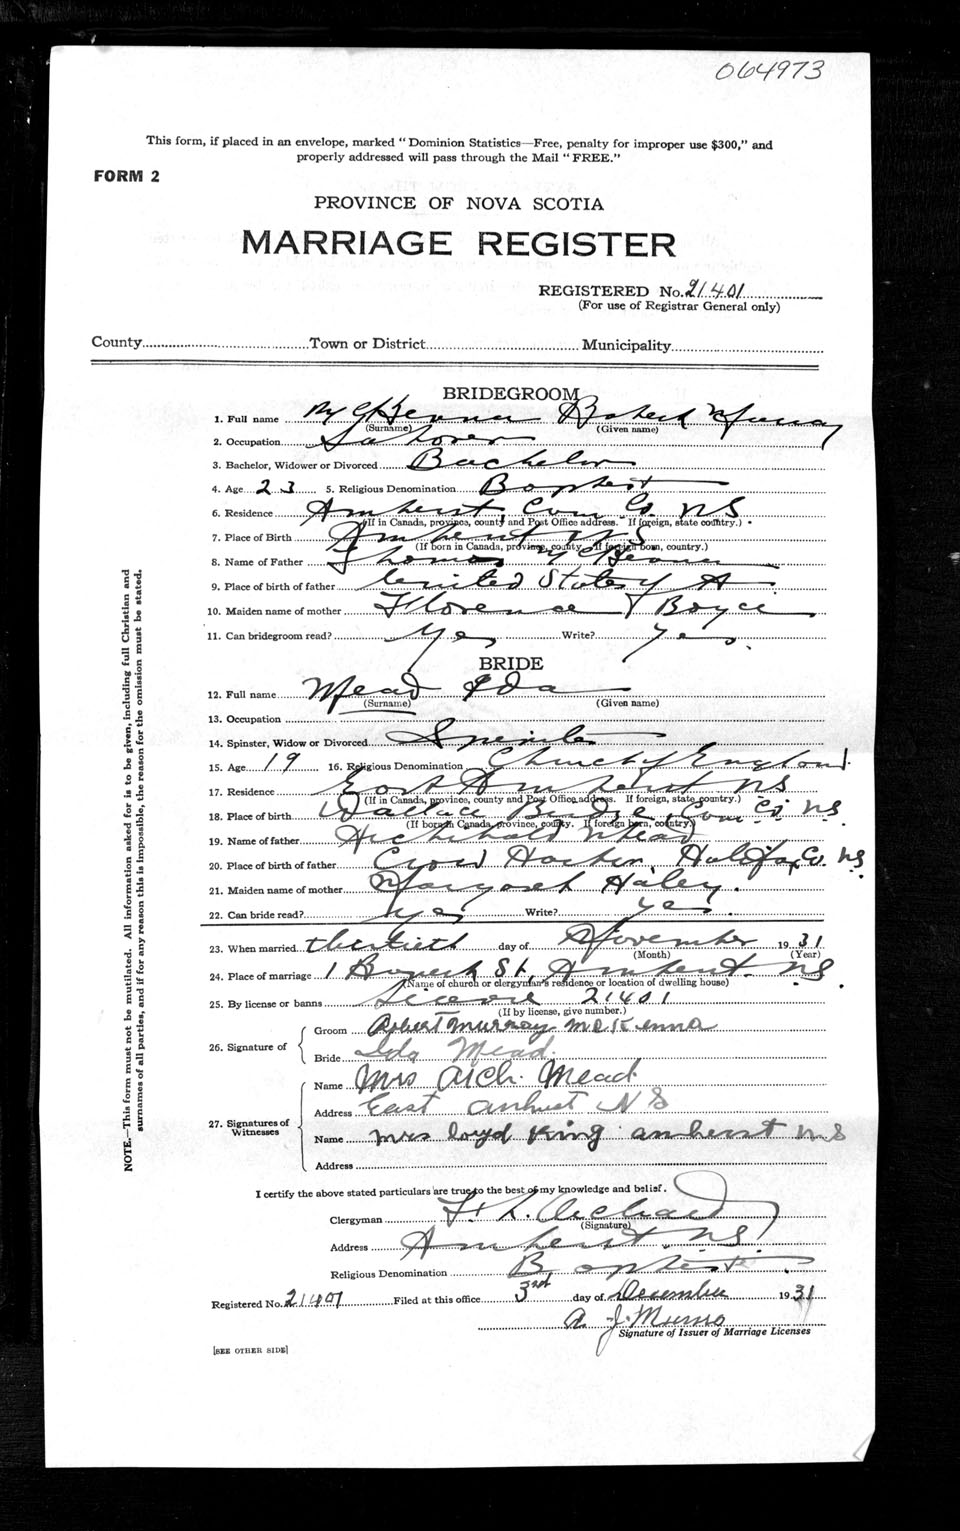 064973
This form, if placed in an envelope, marked "Dominion Statistics—Free, penalty for improper use $300," and
properly addressed will pass through the Mail "FREE."
FORM 2
PROVINCE OF NOVA SCOTIA
MARRIAGE REGISTER
REGISTERED No. 21401
(For use of Registrar General only)
County Town or District Municipality
BRIDEGROOM
1. Full name McKenna Robert Murray
(Surname) (Given name)
2. Occupation Laborer
3. Bachelor, Widower or Divorced Bachelor
4. Age 23 5. Religious Denomination Baptist
6. Residence Amherst, Cum Co. NS
(If in Canada, province, county and Post Office address. If foreign, state country.)
7. Place of Birth Amherst NS
(If born in Canada, province, county. If foreign born, country.)
8. Name of Father Thomas McKenna
9. Place of birth of father United States of A
10. Maiden name of mother Florence Boyce
11. Can bridegroom read? Yes Write? Yes.
BRIDE
12. Full name Mead Ida
(Surname) (Given name)
13. Occupation
14. Spinster, Widow or Divorced Spinster
15. Age 19 16. Religious Denomination Church of England.
17. Residence East Amherst NS
(If in Canada, province, county and Post Office address. If foreign, state country.)
18. Place of birth Wallace Bridge, Cum. Co. NS.
(If born in Canada, province, county. If foreign born, country.)
19. Name of father Archibald Mead
20. Place of birth of father Harbor, Halifax Co. NS.
21. Maiden name of mother Margaret Haley.
22. Can bride read? Yes Write? Yes.
23. When married thirtieth day of November 1931
(Month) (Year)
24. Place of marriage 1 St, Amherst. NS.
(Name of church or clergyman's residence or location of dwelling house)
25. By license or banns License 21401
(If by license, give number.)
26. Signature of
Groom Robert Murray McKenna
Bride Ida Mead.
27. Signatures of Witnesses
Name Mrs Arch. Mead
Address East Amherst NS
Name Mrs Loyd King Amherst NS
Address
I certify the above stated particulars are true to the best of my knowledge and belief.
Clergyman
(Signature)
Address Amherst NS.
Religious Denomination Baptist.
Registered No. 21401 Filed at this office 3rd day of December 1931
A. J. Munro
Signature of Issuer of Marriage Licenses
[SEE OTHER SIDE]
NOTE.—This form must not be mutilated. All information asked for is to be given, including full Christian and
surnames of all parties, and if for any reason this is impossible, the reason for the omission must be stated.